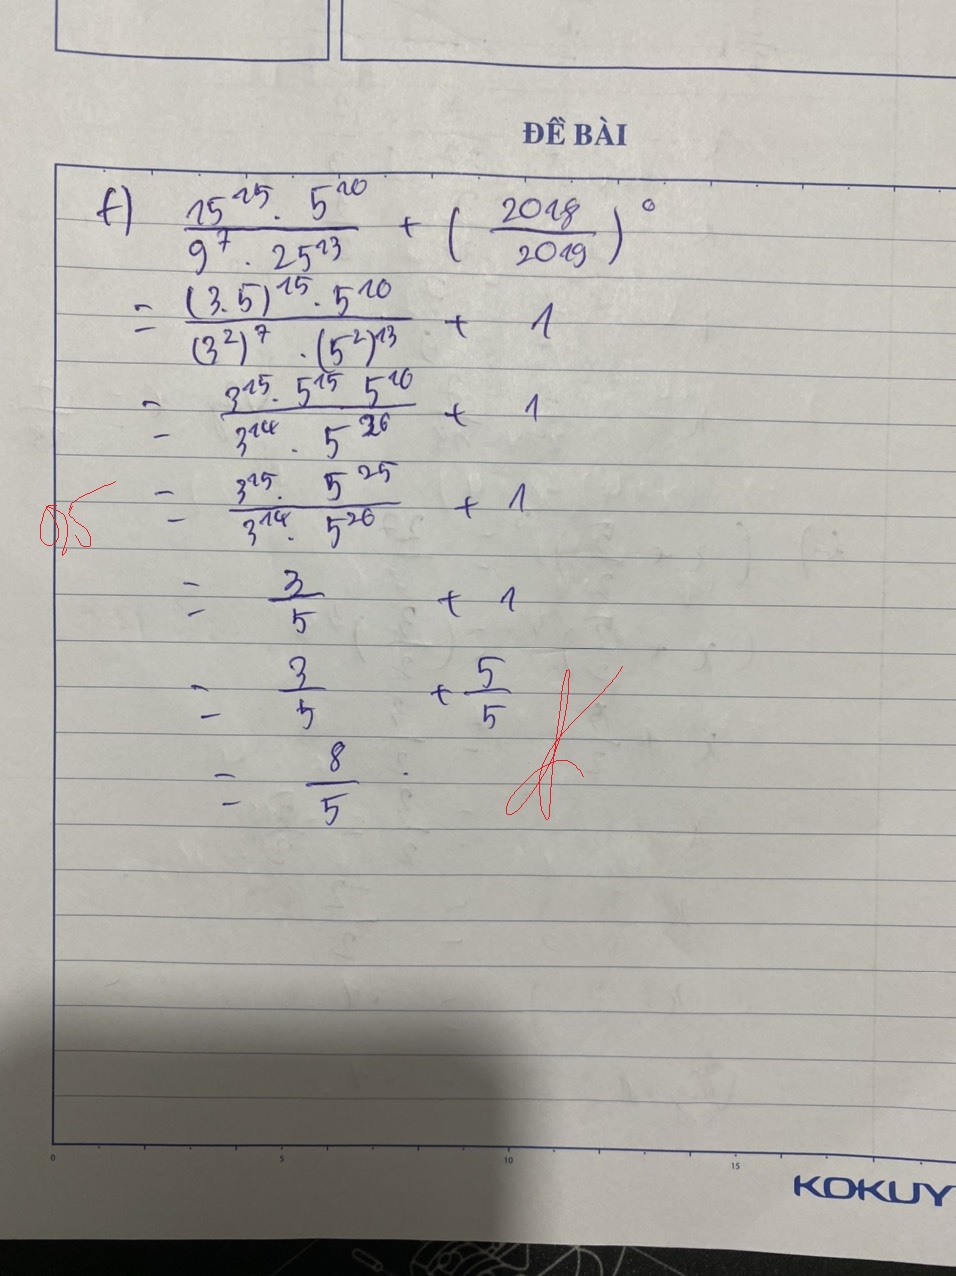 ĐỀ BÀI
f) \frac{15^{15} . 5^{10}}{9^7 . 25^{13}} + (\frac{2018}{2019})^0
= \frac{(3.5)^{15} . 5^{10}}{(3^2)^7 . (5^2)^{13}} + 1
= \frac{3^{15} . 5^{15} 5^{10}}{3^{14} . 5^{26}} + 1
0,5 = \frac{3^{15} . 5^{25}}{3^{14} . 5^{26}} + 1
= \frac{3}{5} + 1
= \frac{3}{5} + \frac{5}{5}
= \frac{8}{5} .
0 5 10 15
KOKUY